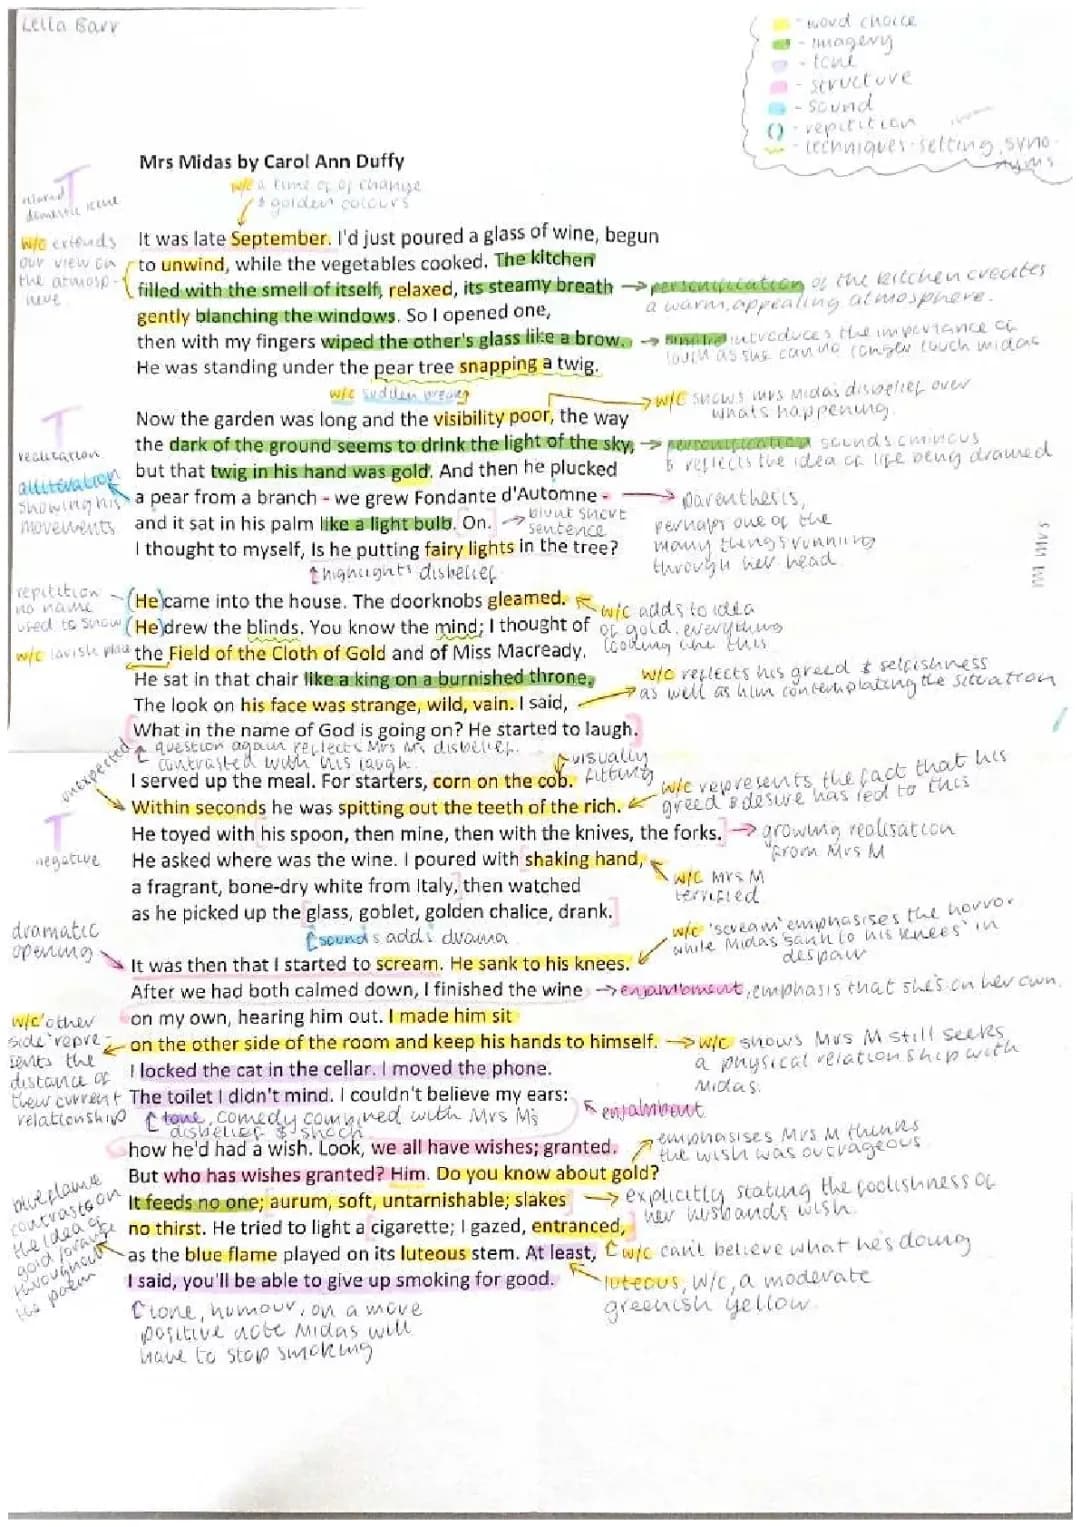 Leila Barr
- word choice
- imagery
- tone
- structure
- sound
() - repitition
- techniques - setting, synonyms
Mrs Midas by Carol Ann Duffy
T
relaxed domestic scene
w/c a time of of change
& golden colours
w/c extends
our view on
the atmosp-
here
It was late September. I'd just poured a glass of wine, begun
to unwind, while the vegetables cooked. The kitchen
filled with the smell of itself, relaxed, its steamy breath
gently blanching the windows. So I opened one,
then with my fingers wiped the other's glass like a brow.
He was standing under the pear tree snapping a twig.
personification of the kitchen creates
a warm, appealing atmosphere.
simile introduces the importance of
touch as she can no longer touch midas
w/c sudden break
w/c shows mrs Midas disbelief over
whats happening.
T
realisation
alliteration
showing his
movements
Now the garden was long and the visibility poor, the way
the dark of the ground seems to drink the light of the sky,
but that twig in his hand was gold. And then he plucked
a pear from a branch - we grew Fondante d'Automne -
and it sat in his palm like a light bulb. On.
I thought to myself, Is he putting fairy lights in the tree?
personification sounds ominous
& reflects the idea of life being drained
parenthesis,
perhaps one of the
many things running
through her head.
blunt short
sentence
highlights disbelief
repitition
no name
used to show
w/c lavish place
He came into the house. The doorknobs gleamed.
He drew the blinds. You know the mind; I thought of
the Field of the Cloth of Gold and of Miss Macready.
He sat in that chair like a king on a burnished throne.
The look on his face was strange, wild, vain. I said,
What in the name of God is going on? He started to laugh.
w/c adds to idea
of gold, everything
looking like this
w/c reflects his greed & selfishness
as well as him contemplating the situation
question again reflects Mrs M's disbelief.
contrasted with his laugh
unexpected
visually
fitting
T
negative
I served up the meal. For starters, corn on the cob.
Within seconds he was spitting out the teeth of the rich.
He toyed with his spoon, then mine, then with the knives, the forks.
He asked where was the wine. I poured with shaking hand,
a fragrant, bone-dry white from Italy, then watched
as he picked up the glass, goblet, golden chalice, drank.
w/c represents the fact that his
greed & desire has led to this
growing realisation
from Mrs M
w/c Mrs M
terrified
sounds adds drama
dramatic
opening
w/c 'scream' emphasises the horror
while Midas 'sank to his knees' in
despair
It was then that I started to scream. He sank to his knees.
After we had both calmed down, I finished the wine
on my own, hearing him out. I made him sit
on the other side of the room and keep his hands to himself.
I locked the cat in the cellar. I moved the phone.
The toilet I didn't mind. I couldn't believe my ears:
enjambment, emphasis that she's on her own.
w/c 'other
side' repre-
sents the
distance of
their current
relationship
w/c shows Mrs M still seeks
a physical relationship with
Midas.
tone, comedy combined with Mrs M's
disbelief & shock
enjambout
how he'd had a wish. Look, we all have wishes; granted.
But who has wishes granted? Him. Do you know about gold?
It feeds no one; aurum, soft, untarnishable; slakes
no thirst. He tried to light a cigarette; I gazed, entranced,
as the blue flame played on its luteous stem. At least,
I said, you'll be able to give up smoking for good.
emphasises Mrs M thinks
the wish was outrageous
explicitly stating the foolishness of
her husbands wish.
w/c can't believe what he's doing
luteous, w/c, a moderate
greenish yellow.
blue flame
contrasts on
the idea of
gold
throughout
the poem
tone, humour, on a more
positive note Midas will
have to stop smoking